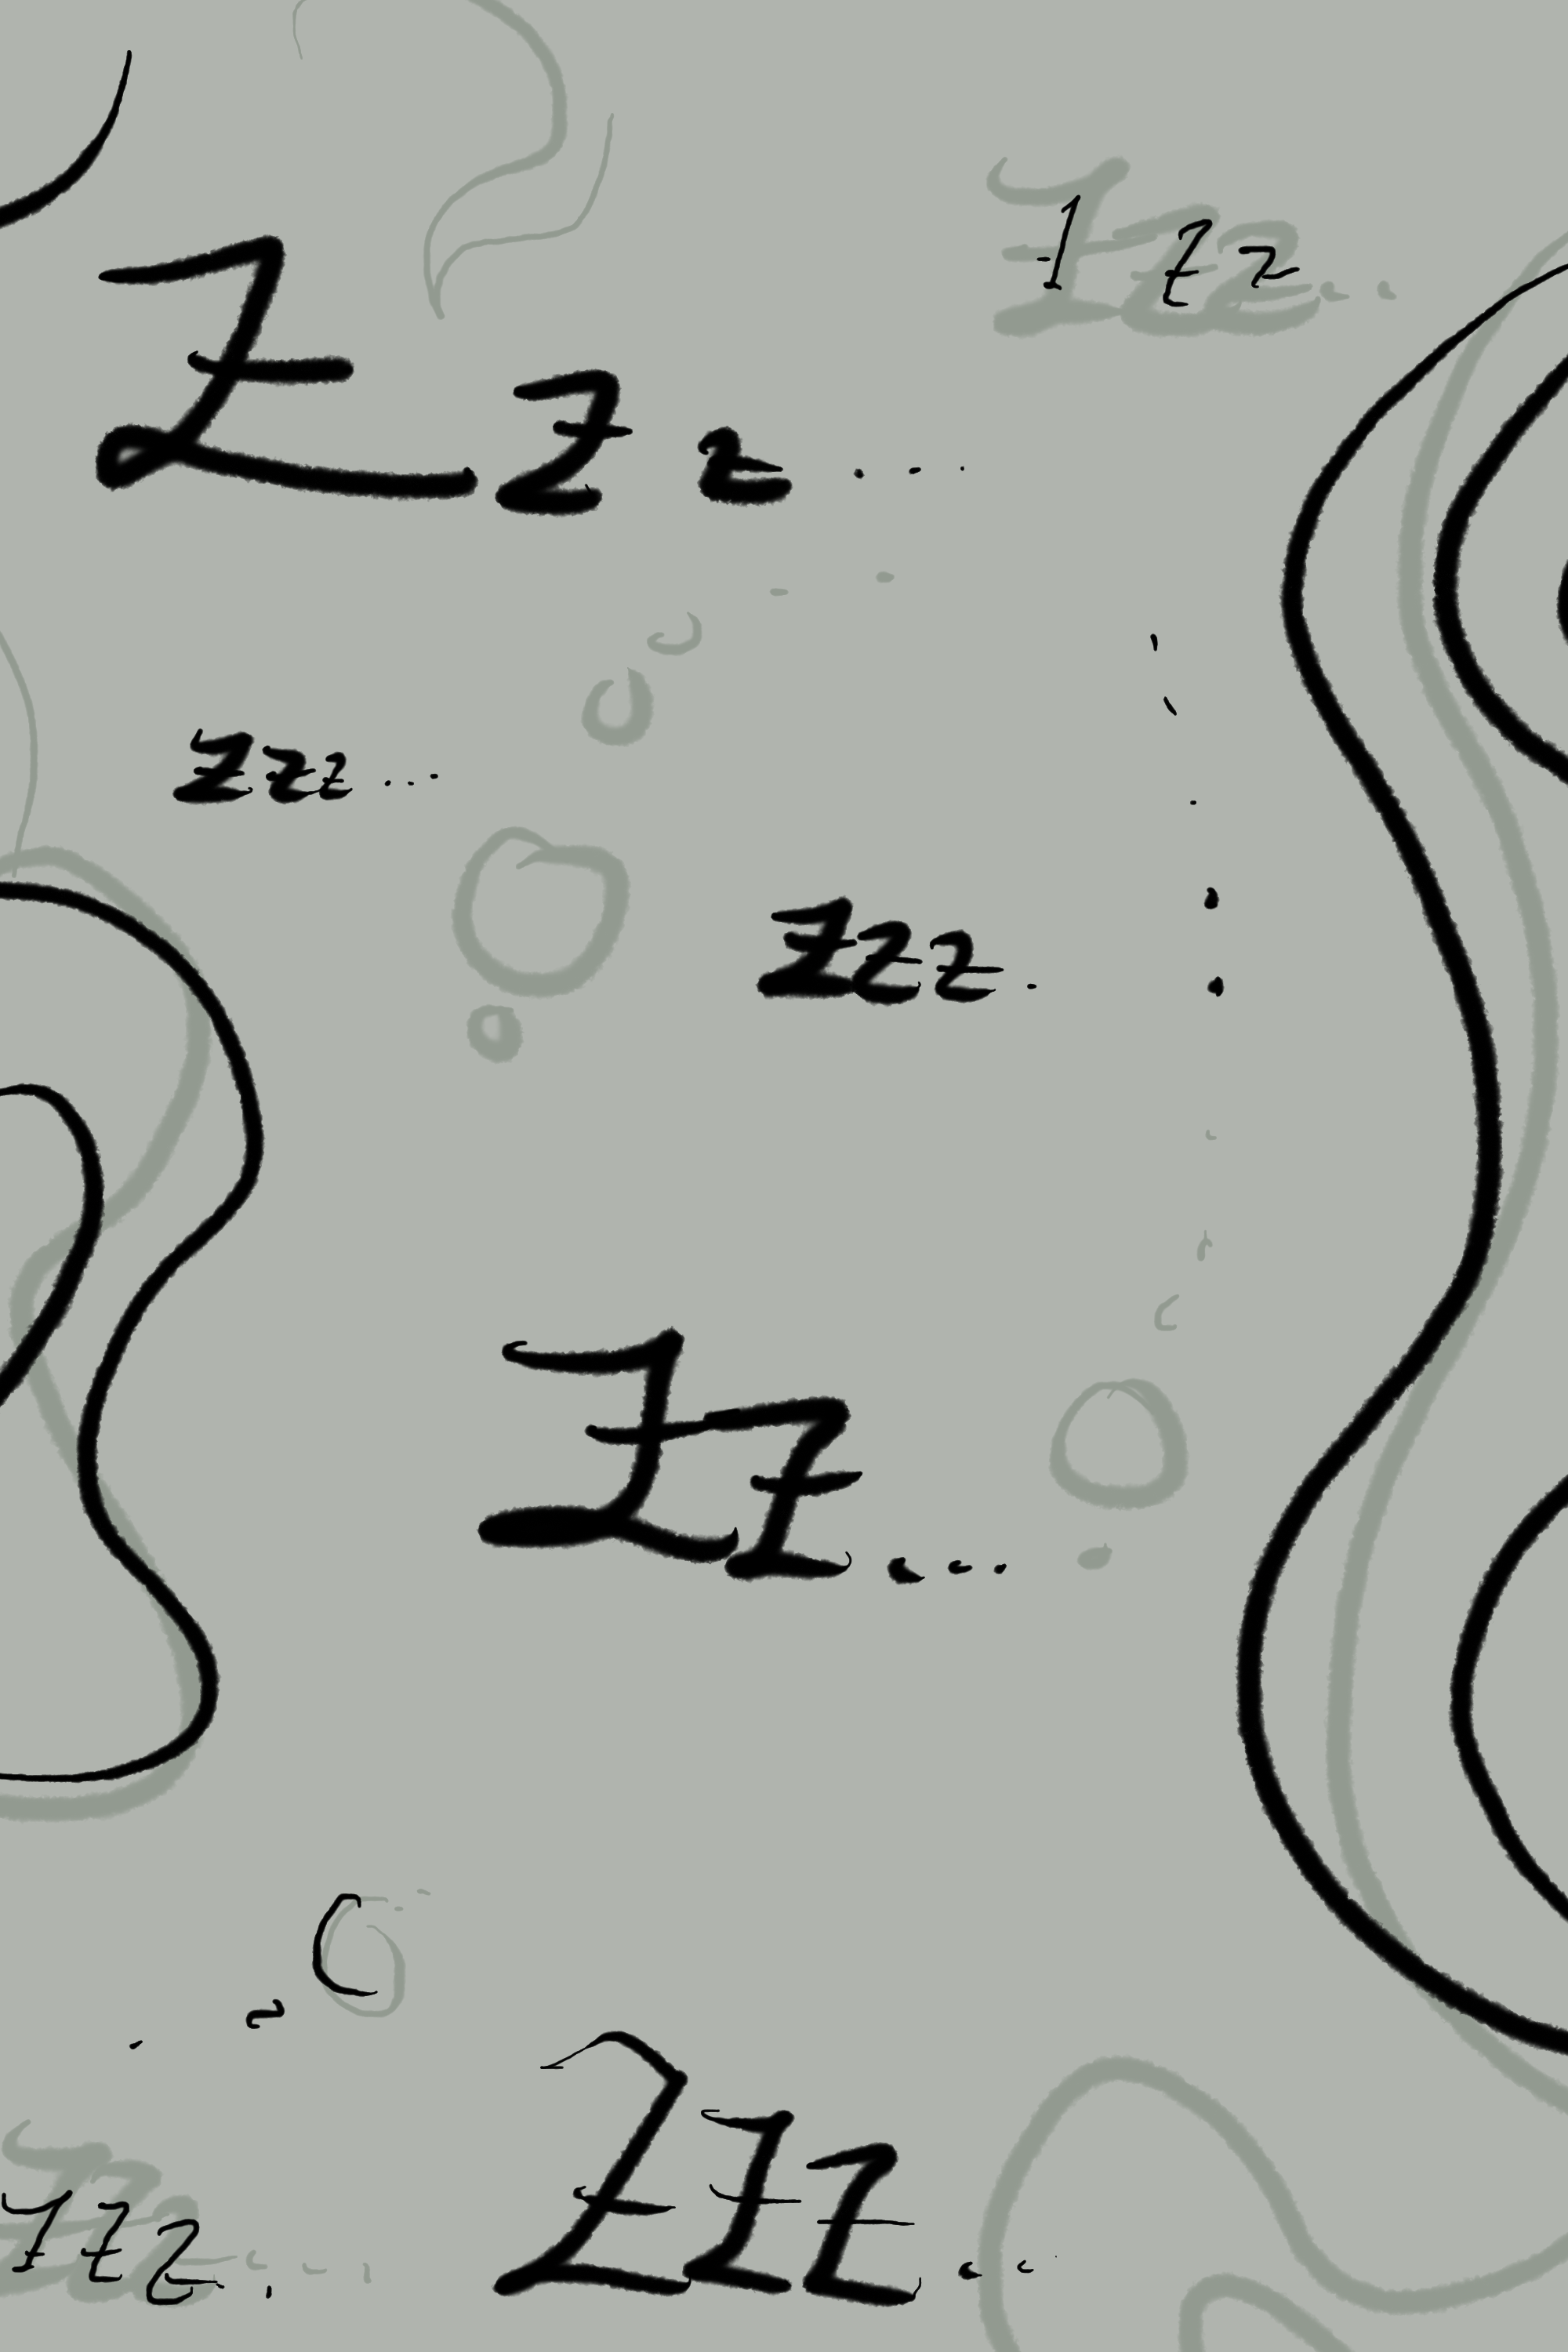 Zzz...
Zzz
Zzz...
Zzz.
Zz...
Zzz...
Zzz..